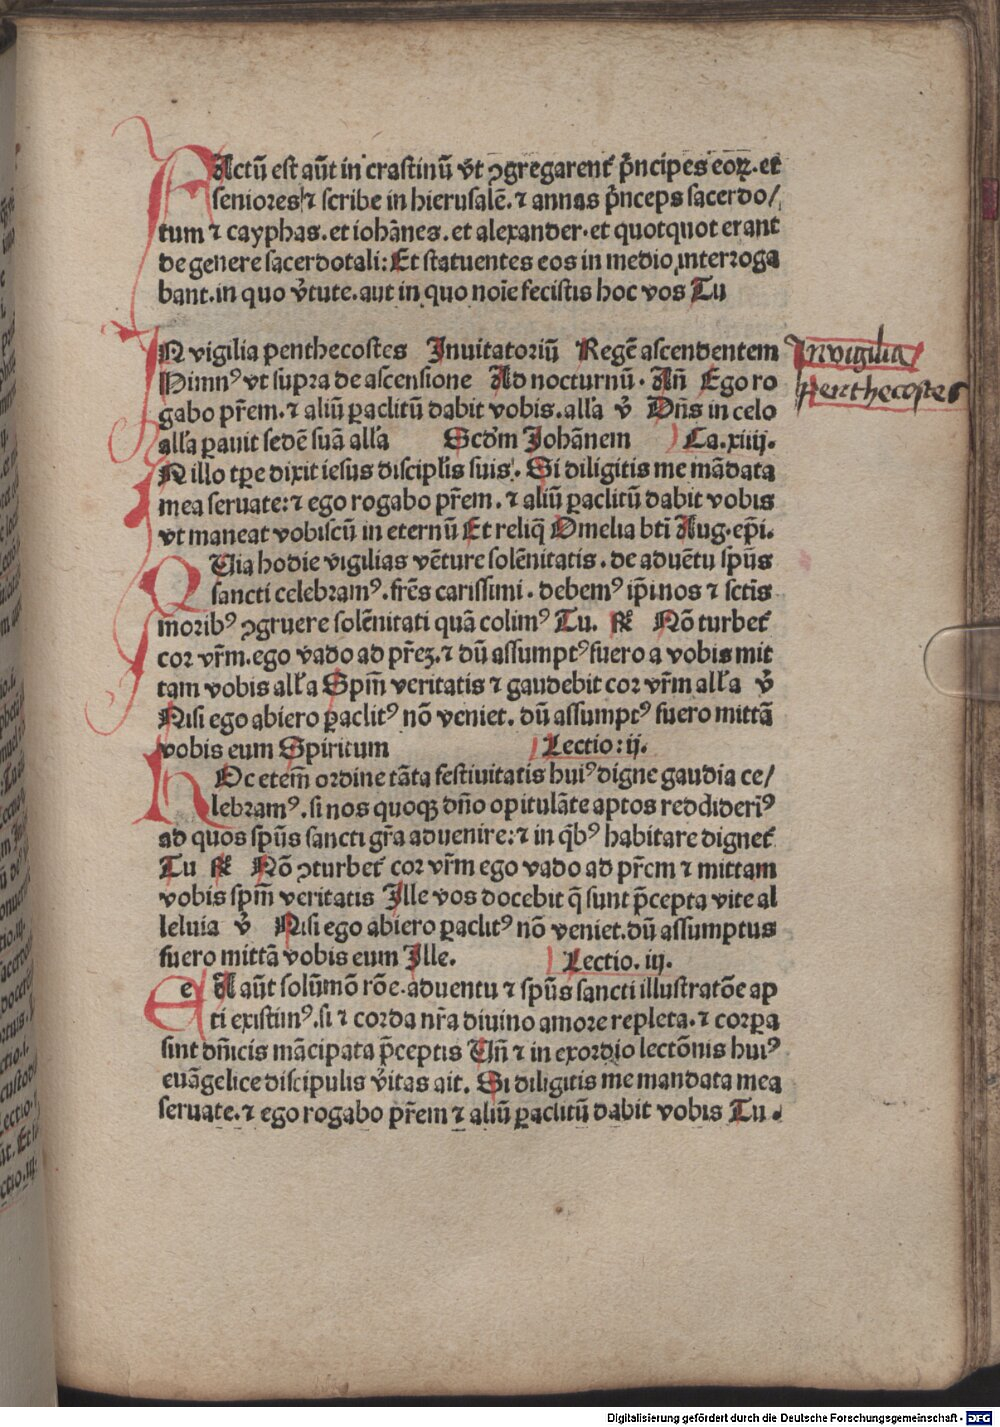 FActū est aūt in crastinū vt ꝯgregarent᷑ pͥncipes eoꝝ. et
seniores ⁊ scribe in hierusalē. ⁊ annas pͥnceps sacerdo/
tum ⁊ cayphas. et iohānes. et alexander. et quotquot erant
de genere sacerdotali: Et statuentes eos in medio interroga
bant. in quo v̓tute. aut in quo noīe fecistis hoc vos Tu
IN vigilia penthecostes Inuitatoriū Regē ascendentem
Himnꝰ vt supra de ascensione Ad nocturnū. An̄ Ego ro
gabo pr̄em. ⁊ aliū ꝑaclitū dabit vobis. alla v̓ Dn̄s in celo
alla ꝑauit sedē suā alla Scd̓m Johānem Ca. xiiij.
IN illo tꝑe dixit iesus disciplis suis. Si diligitis me mādata
mea seruate: ⁊ ego rogabo pr̄em. ⁊ aliū ꝑaclitū dabit vobis
vt maneat vobiscū in eternū Et reliq̄ Omelia bt̄i Aug. ep̄i.
QUia hodie vigilias vēture solēnitatis. de aduētu sp̄ūs
sancti celebramꝰ. fr̄es carissimi. debemꝰ ip̄i nos ⁊ sct̄is
moribꝰ ꝯgruere solēnitati quā colimꝰ Tu. ꝶ Nō turbet᷑
cor vr̄m. ego vado ad pr̄eꝫ. ⁊ dū assumptꝰ fuero a vobis mit
tam vobis alla Spm̄ veritatis ⁊ gaudebit cor vr̄m alla v̓
Nisi ego abiero ꝑaclitꝰ nō veniet. dū assumptꝰ fuero mittā
vobis eum Spiritum Lectio: ij.
HOc etem̄ ordine tāta festiuitatis huiꝰ digne gaudia ce/
lebramꝰ. si nos quoqꝫ dn̄o opitulāte aptos reddiderīꝰ
ad quos sp̄ūs sancti gr̄a aduenire: ⁊ in qͥbꝰ habitare dignet᷑
Tu ꝶ Nō ꝯturbet᷑ cor vr̄m ego vado ad pr̄em ⁊ mittam
vobis spm̄ veritatis Ille vos docebit q̄ sunt p̄cepta vite al
leluia v̓ Nisi ego abiero ꝑaclitꝰ nō veniet. dū assumptus
fuero mittā vobis eum Ille. Lectio. iij.
EA aūt solūmō rōe. aduentu ⁊ sp̄ūs sancti illustratōe ap
ti existimꝰ. si ⁊ corda nr̄a diuino amore repleta. ⁊ corꝑa
sint dn̄icis mācipata p̄ceptis Un̄ ⁊ in exordio lectōnis huiꝰ
euāgelice discipulis v̓itas ait. Si diligitis me mandata mea
seruate. ⁊ ego rogabo pr̄em ⁊ aliū ꝑaclitū dabit vobis Tu.
In vigilia
Penthecostes
Digitalisierung gefördert durch die Deutsche Forschungsgemeinschaft - DFG